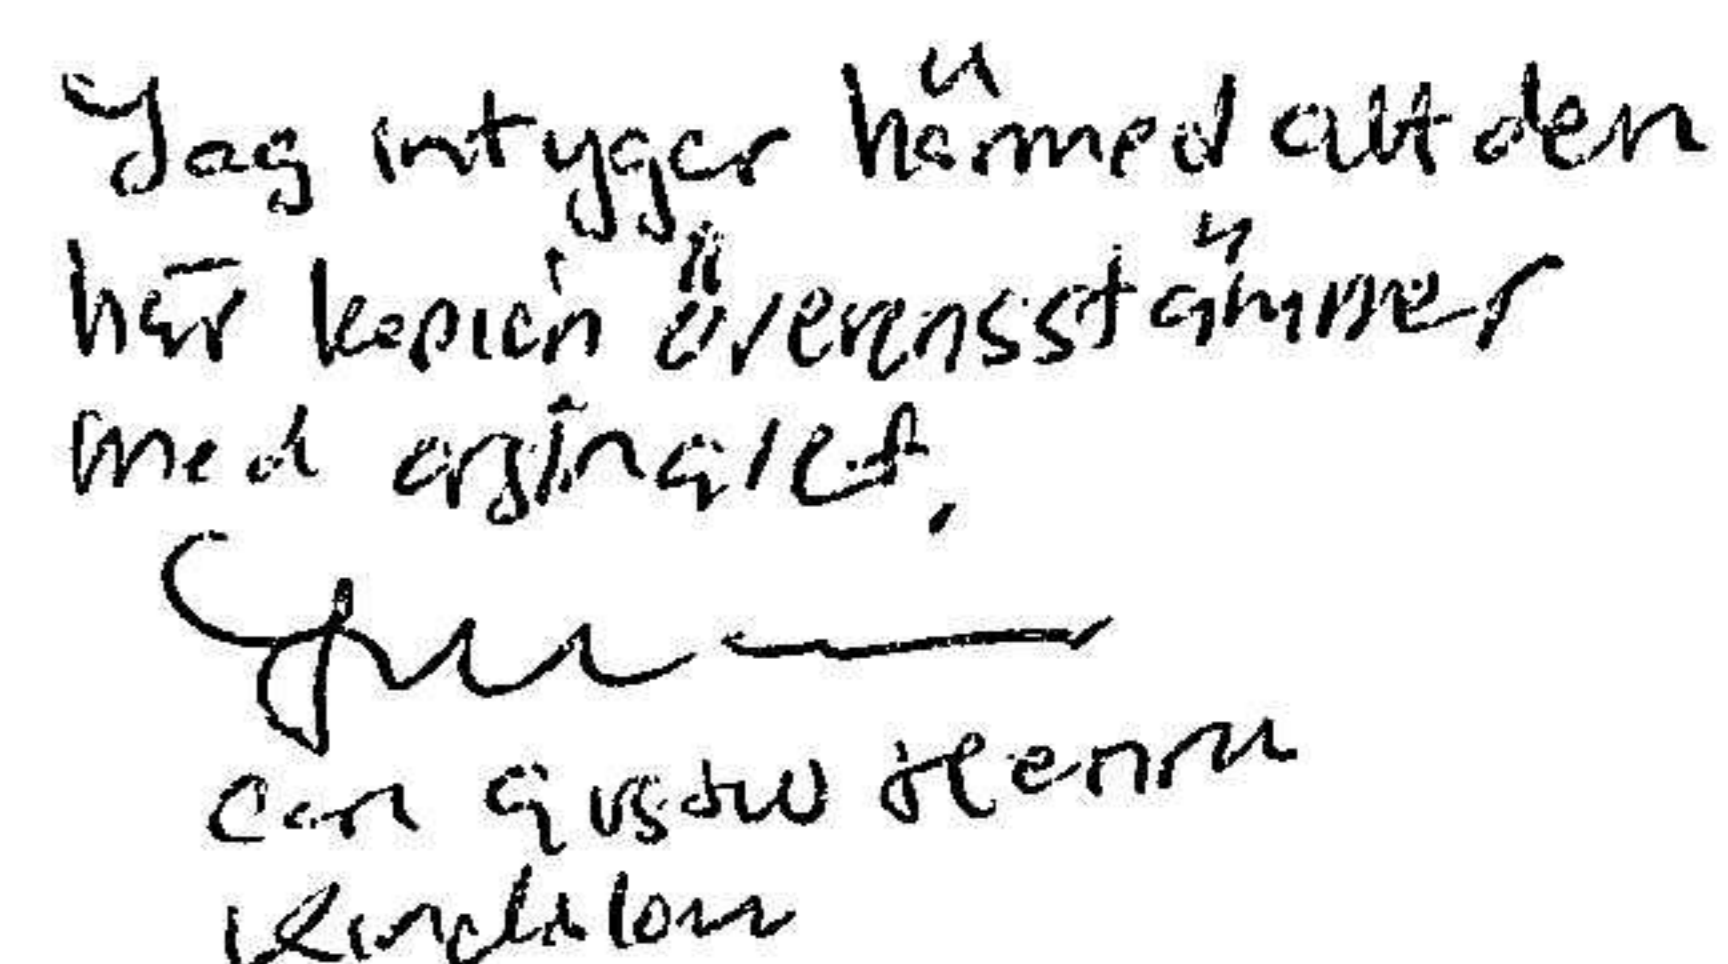 Jag intyger härmed att den
här kopien överensstämmer
med orginalet.
Carl Gustav Henrik